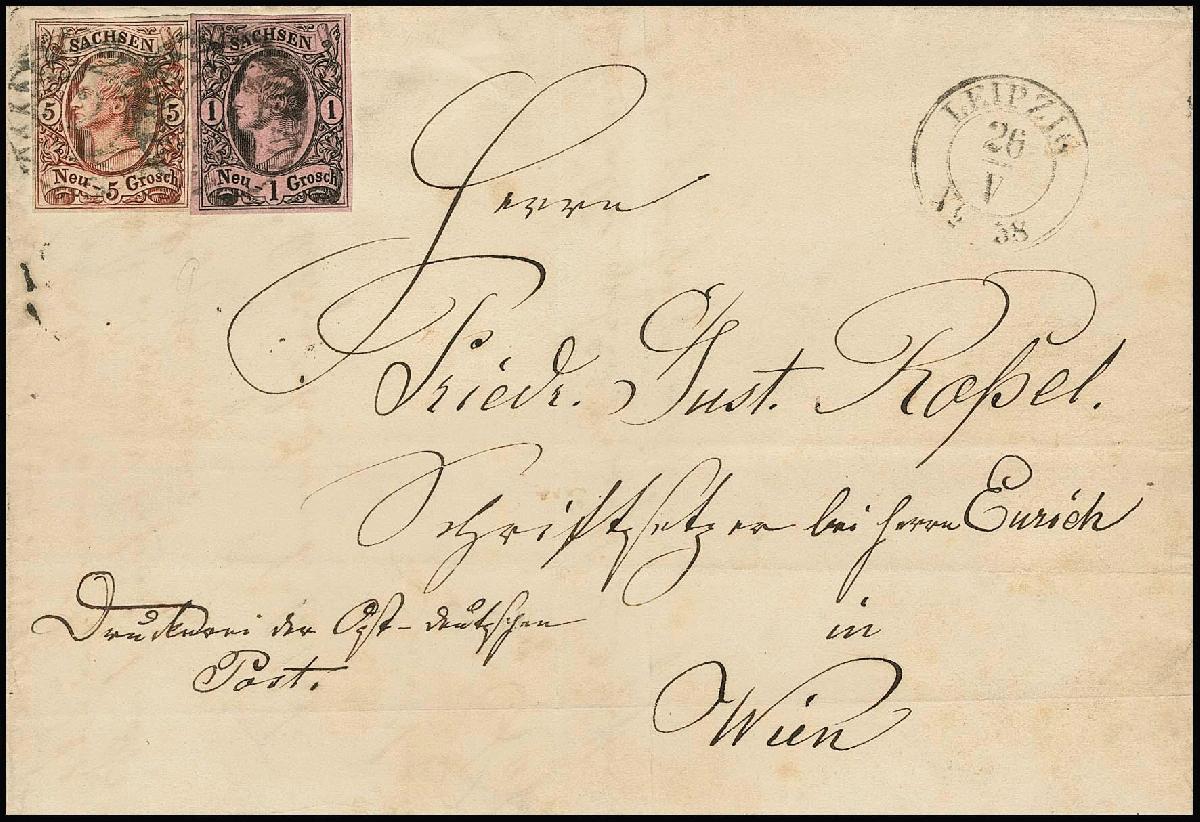 SACHSEN
5 5
Neu-5 Grosch
SACHSEN
1 1
Neu-1 Grosch
LEIPZIG
26
V
58
Herrn
Friedr. Gust. Roßel.
Schriftsetzer bei Herrn Eurich
Druckerei der Ost-deutschen
Post.
in
Wien